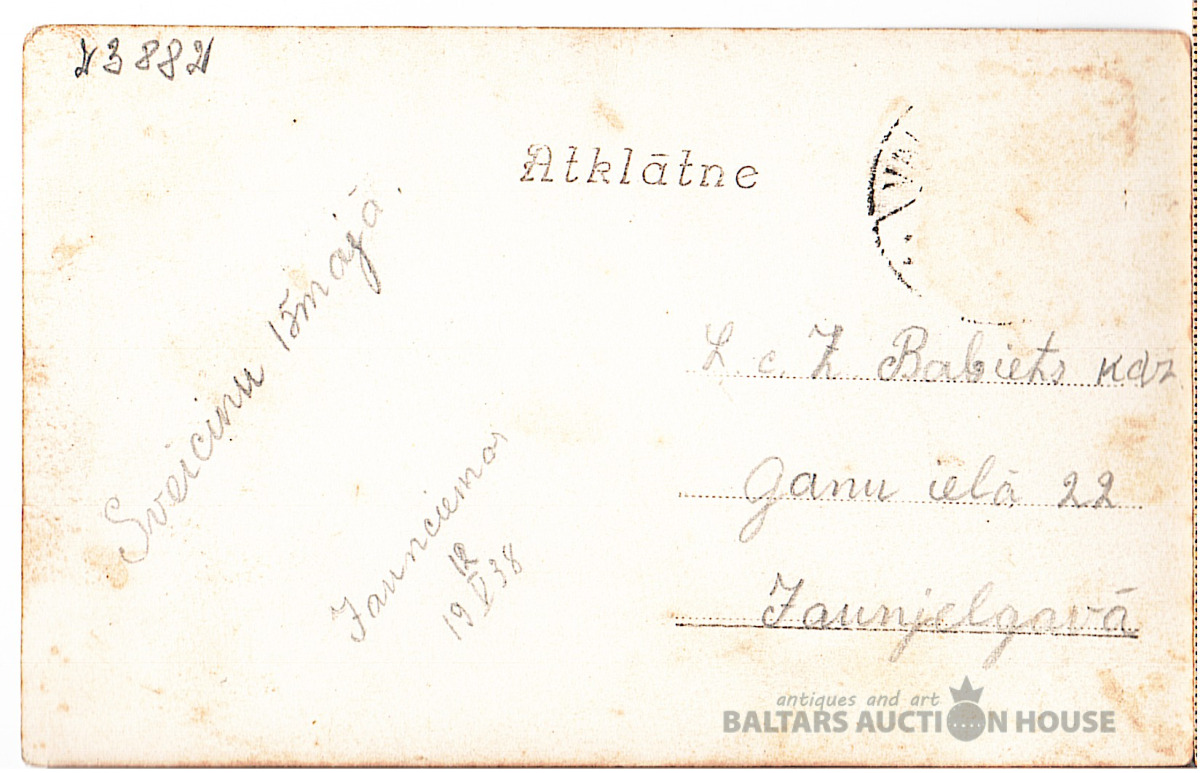 23882
Atklātne
VA
Sveicinu 15 maijā.
L. c. Z Babiets kdz
Ganu ielā 22
Jaunjelgavā
Jaunciemos
12
19 V 38
antiques and art
BALTARS AUCTION HOUSE